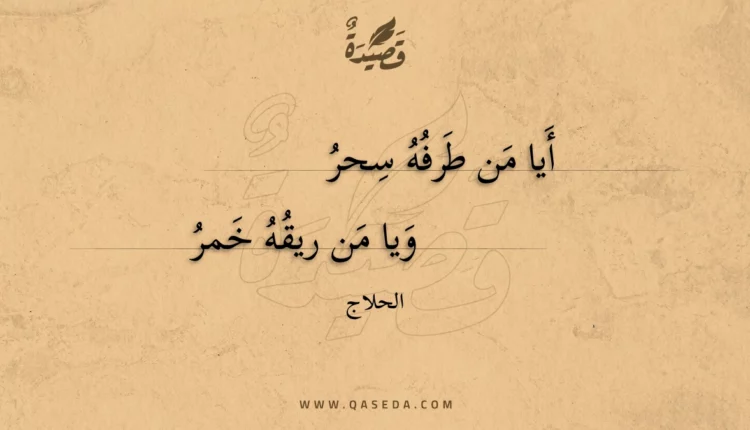 قَصِيْدَةٌ
أَيا مَن طَرفُهُ سِحرُ
وَيا مَن ريقُهُ خَمرُ
الحلاج
WWW.QASEDA.COM